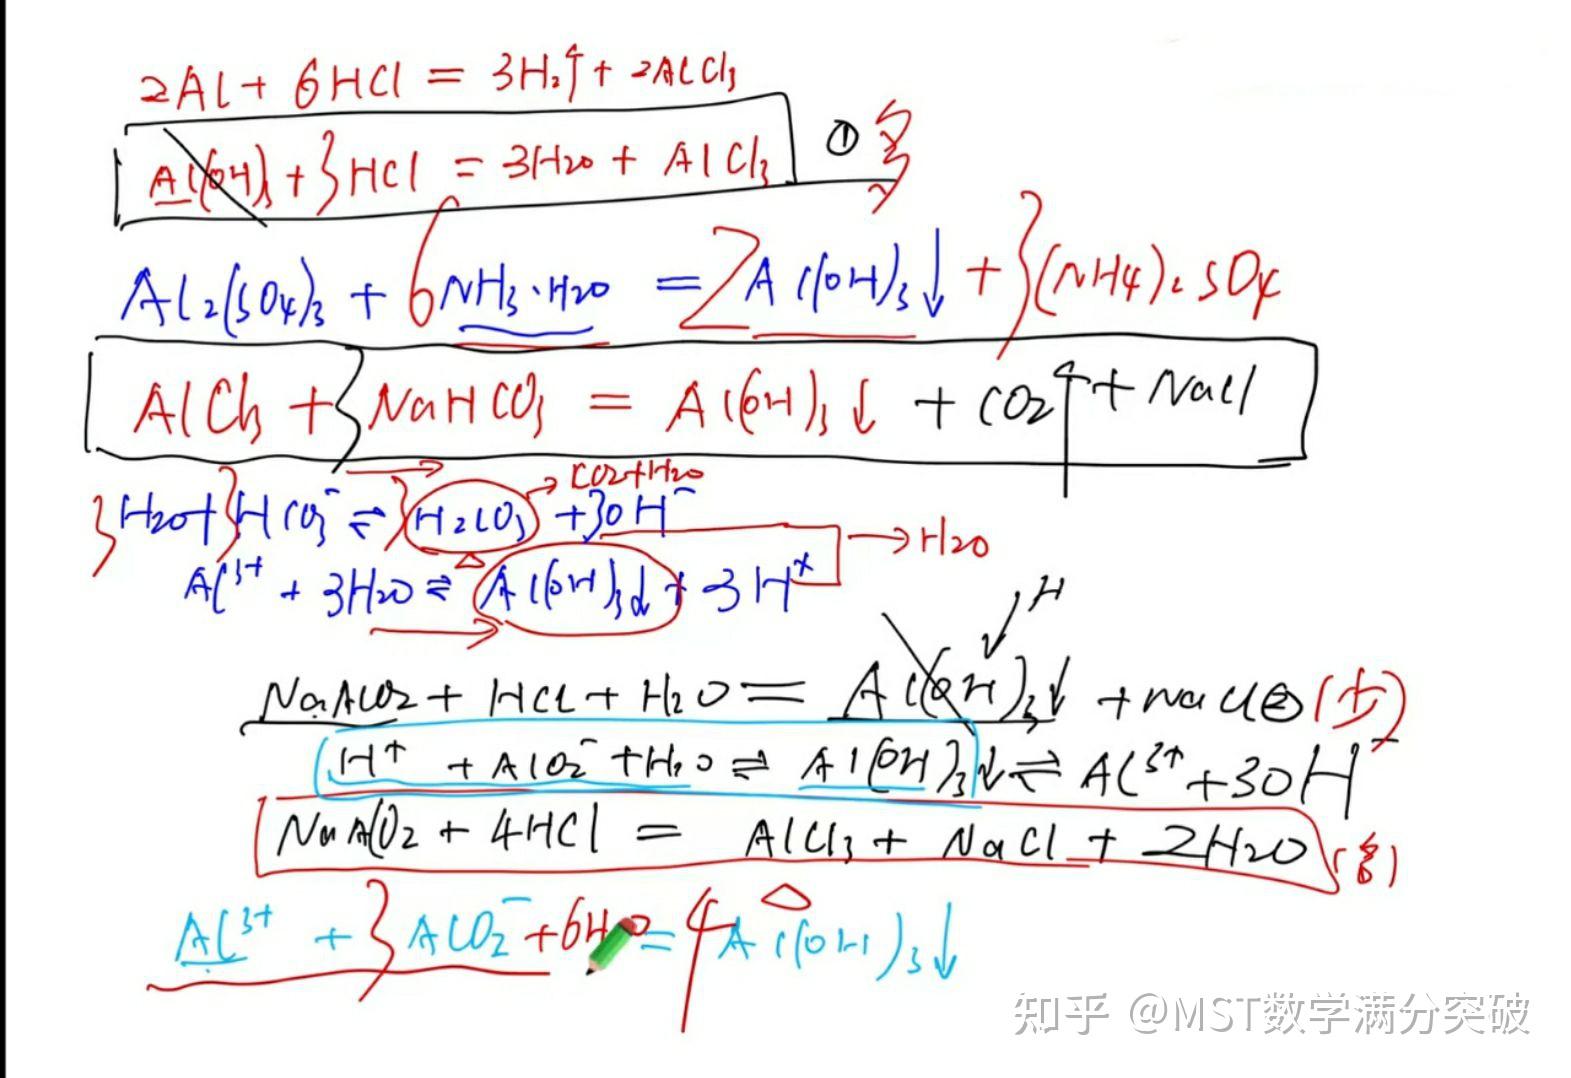 2Al + 6HCl = 3H₂↑ + 2AlCl₃
Al(OH)₃ + 3HCl = 3H₂O + AlCl₃ ① 多
Al₂(SO₄)₃ + 6NH₃·H₂O = 2Al(OH)₃↓ + 3(NH₄)₂SO₄
AlCl₃ + 3NaHCO₃ = Al(OH)₃↓ + CO₂↑ + NaCl
CO₂+H₂O
3H₂O + 3HCO₃⁻ ⇌ 3H₂CO₃ + 3OH⁻
→H₂O
Al³⁺ + 3H₂O ⇌ Al(OH)₃↓ + 3H⁺
H
NaAlO₂ + HCl + H₂O = Al(OH)₃↓ + NaCl ② (少)
H⁺ + AlO₂⁻ + H₂O ⇌ Al(OH)₃↓ ⇌ Al³⁺ + 3OH⁻
NaAlO₂ + 4HCl = AlCl₃ + NaCl + 2H₂O (多)
Al³⁺ + 3AlO₂⁻ + 6H₂O = 4Al(OH)₃↓
知乎 @MST数学满分突破